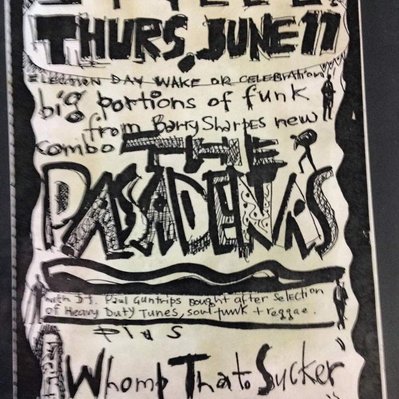 THURS. JUNE 11
ELECTION DAY WAKE OR CELEBRATION
big portions of funk
from Barry Sharpes new
combo THE
PASADENAS
with DJ. Paul Guntrips sought after selection
of Heavy Duty Tunes, soul funk + reggae.
Whomp That Sucker